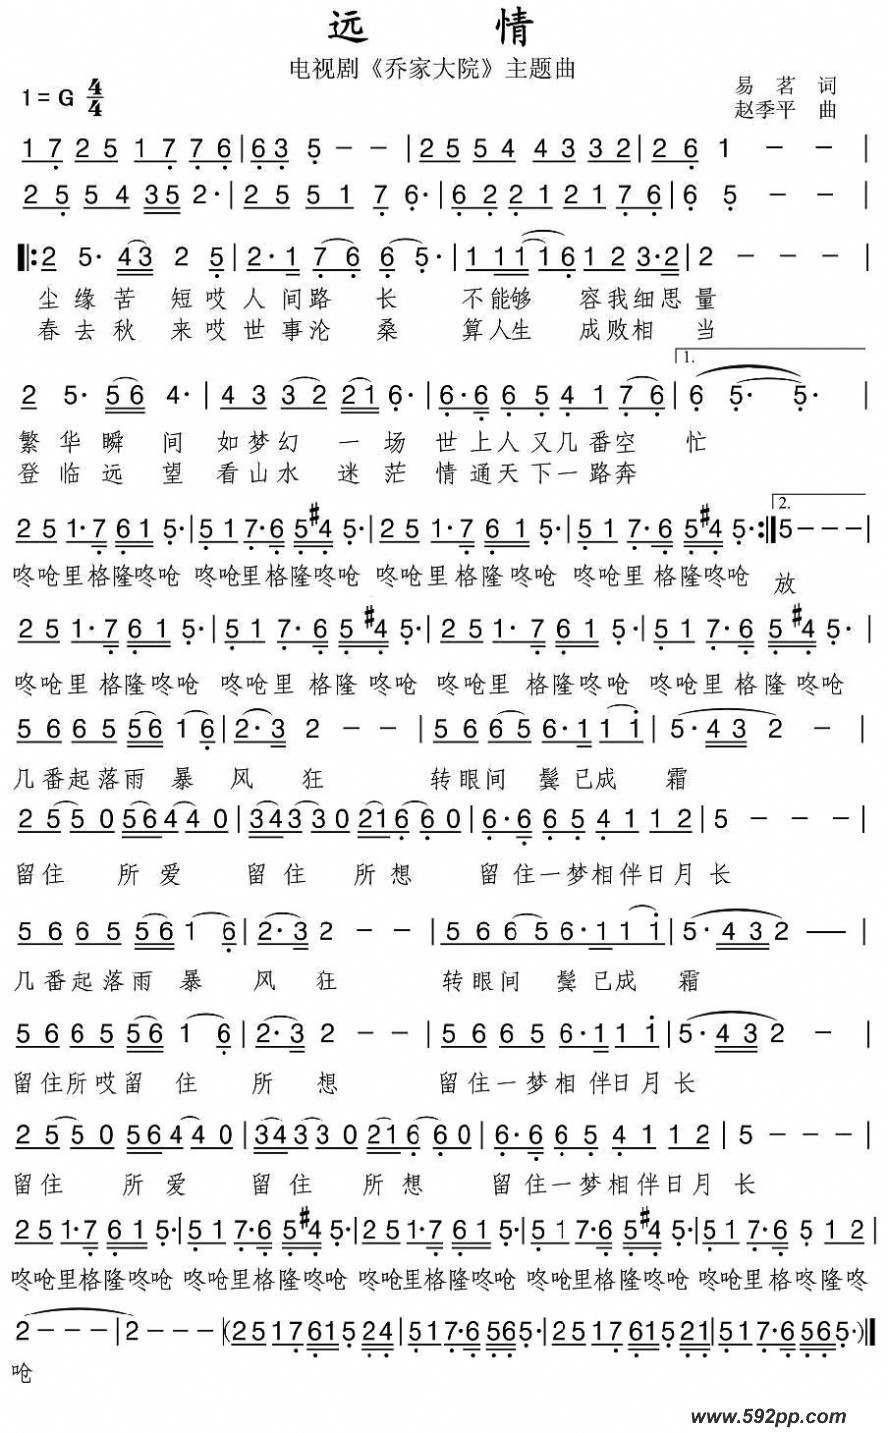 远 情
电视剧《乔家大院》主题曲
1=G 4/4
易 茗 词
赵季平 曲
1 7 2 5 1 7 7 6 | 6 3 5 - - | 2 5 5 4 4 3 3 2 | 2 6 1 - - |
2 5 5 4 35 2· | 2 5 5 1 7 6· | 6 2 2 1 2 1 7 6 | 6 5 - - |
‖: 2 5· 43 2 5 | 2·1 7 6 6 5· | 1 1 1 1 6 1 2 3·2 | 2 - - - |
尘缘苦 短哎人间路 长 不能够 容我细思量
春去秋 来哎世事沧 桑 算人生 成败相 当
1.
2 5· 56 4· | 4 3 32 21 6· | 6·6 6 5 4 1 7 6 | 6 5· 5· |
繁华瞬 间 如梦幻 一 场 世上人又几番空 忙
登临远 望 看山水 迷茫 情通天下一路奔
2.
2 5 1·7 61 5· | 5 1 7·6 5#4 5· | 2 5 1·7 61 5· | 5 1 7·6 5#4 5· :‖ 5 - - - |
咚呛里格隆咚呛 咚呛里格隆咚呛 咚呛里格隆咚呛 咚呛里格隆咚呛 放
2 5 1·7 61 5· | 5 1 7·6 5#4 5· | 2 5 1·7 61 5· | 5 1 7·6 5#4 5· |
咚呛里格隆咚呛 咚呛里格隆咚呛 咚呛里格隆咚呛 咚呛里格隆咚呛
5 6 6 5 56 1 6 | 2·3 2 - - | 5 6 6 5 6·1 1 1 | 5·43 2 - |
几番起落雨 暴 风 狂 转眼间 鬓已成 霜
2 5 5 0 56 4 4 0 | 34 3 3 0 21 6 6 0 | 6·6 6 5 4 1 1 2 | 5 - - - |
留住 所爱 留住 所想 留住一梦相伴日月长
5 6 6 5 56 1 6 | 2·3 2 - - | 5 6 6 5 6·1 1 1 | 5·43 2 — |
几番起落雨 暴 风 狂 转眼间 鬓已成 霜
5 6 6 5 56 1 6 | 2·3 2 - - | 5 6 6 5 6·1 1 1 | 5·43 2 - |
留住所哎留 住 所 想 留住一梦相伴日月长
2 5 5 0 56 4 4 0 | 34 3 3 0 21 6 6 0 | 6·6 6 5 4 1 1 2 | 5 - - - |
留住 所爱 留住 所想 留住一梦相伴日月长
2 5 1·7 61 5· | 5 1 7·6 5#4 5· | 2 5 1·7 61 5· | 5 1 7·6 5#4 5· | 5 1 7·6 5 1 2 |
咚呛里格隆咚呛 咚呛里格隆咚呛 咚呛里格隆咚呛 咚呛里格隆咚呛 咚呛里格咚隆咚
2 - - - | 2 - - - | (2 5 1 7 61 5 24 | 5 1 7·6 56 5· | 2 5 1 7 61 5 21 | 5 1 7·6 56 5·) ‖
呛
www.592pp.com